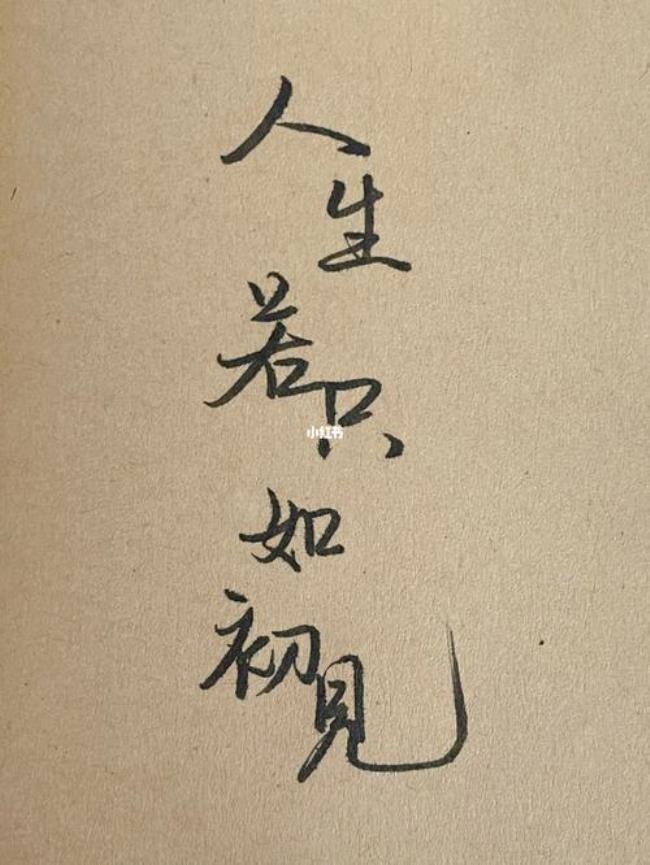 人生
若只
如
初見
小红书